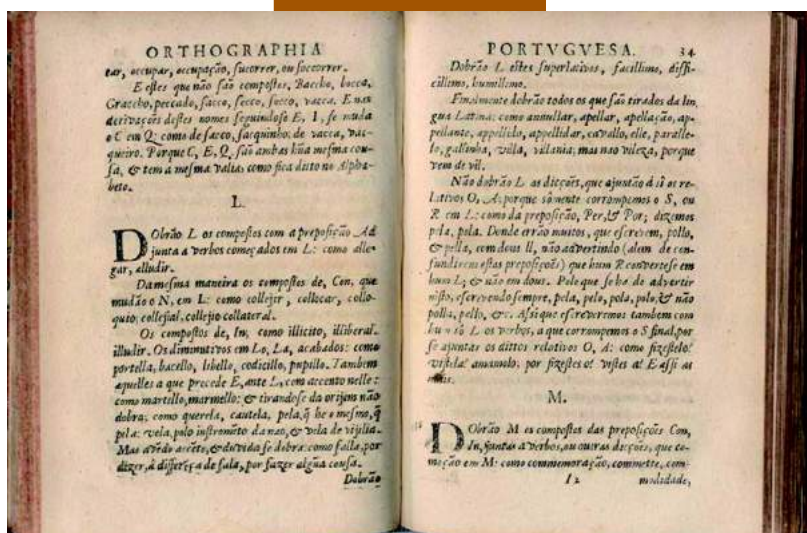 ORTHOGRAPHIA
car, occupar, occupação, sucorrer, ou soccorrer.
E estes que não são compostos. Baccho, bocca,
Graccho, peccado, sacco, secco, socco, vacca. E nas
derivações destes nomes seguindose E, I, se muda
o C em Q: como de sacco, saquinho: de vacca, vac-
queiro. Porque C, E, Q, são ambas hũa mesma cou-
sa, & tem a mesma valia: como fica dito no Alpha-
beto.
L.
DObrão L os compostos com a preposição Ad
junta a verbos começados em L: como alle-
gar, alludir.
Da mesma maneira os compostos de, Con, que
mudão o N, em L: como collejir, collocar, collo-
quio, collejial, collejio collateral.
Os compostos de, In, como illicito, illiberal,
illudir. Os diminutivos em Lo, La, acabados: como
portella, bacello, libello, codicillo, pupillo. Tambem
aquelles a que precede E, ante L, com accento nelle:
como martillo, marmello: & tirandose da orijem não
dobra: como querela, cautela, pela, q̃ he o mesmo, q̃
pila: vela, polo instromẽto da nao, & vela de vijilia.
Mas avẽdo accẽto, & duvida se dobra: como falla, por
dizer, à differẽça de fala, por fazer algũa cousa.
Dobrão
PORTVGVESA. 34
Dobrão L estes superlativos, facillimo, diffi-
cillimo, humillimo.
Finalmente dobrão todos os que são tirados da lin
gua Latina: como annullar, apellar, apellação, ap-
pellante, appellido, appellidar, cavallo, elle, paralle-
lo, gallinha, villa, villania; mas não vileza, porque
vem de vil.
Não dobrão L as dicções, que ajuntão á si os re-
lativos O, A: porque sómente corrompemos o S, ou
R em L: como da preposição, Per, & Por; dizemos
pela, pola. Donde errão muitos, que escrevem, pollo,
& pella, com dous ll, não advertindo (alem de con-
fundirem estas preposições) que hum R convertese em
hum L; & não em dous. Polo que se ha de advertir
nisto, escrevendo sempre, pela, pelo, pola, polo; & não
polla, pello, &c. Assi que escreveremos tambem com
hum só L os verbos, a que corrompemos o S final, por
se ajuntar os dittos relativos O, A: como fizestelo?
vistela? amamolo; por fizestes o? vistes a? E assi as
mais.
M.
DObrão M os compostos das preposições Con,
In, juntas a verbos, ou outras dicções, que co-
meção em M: como commemoração, commette, com-
I 2 modidade,